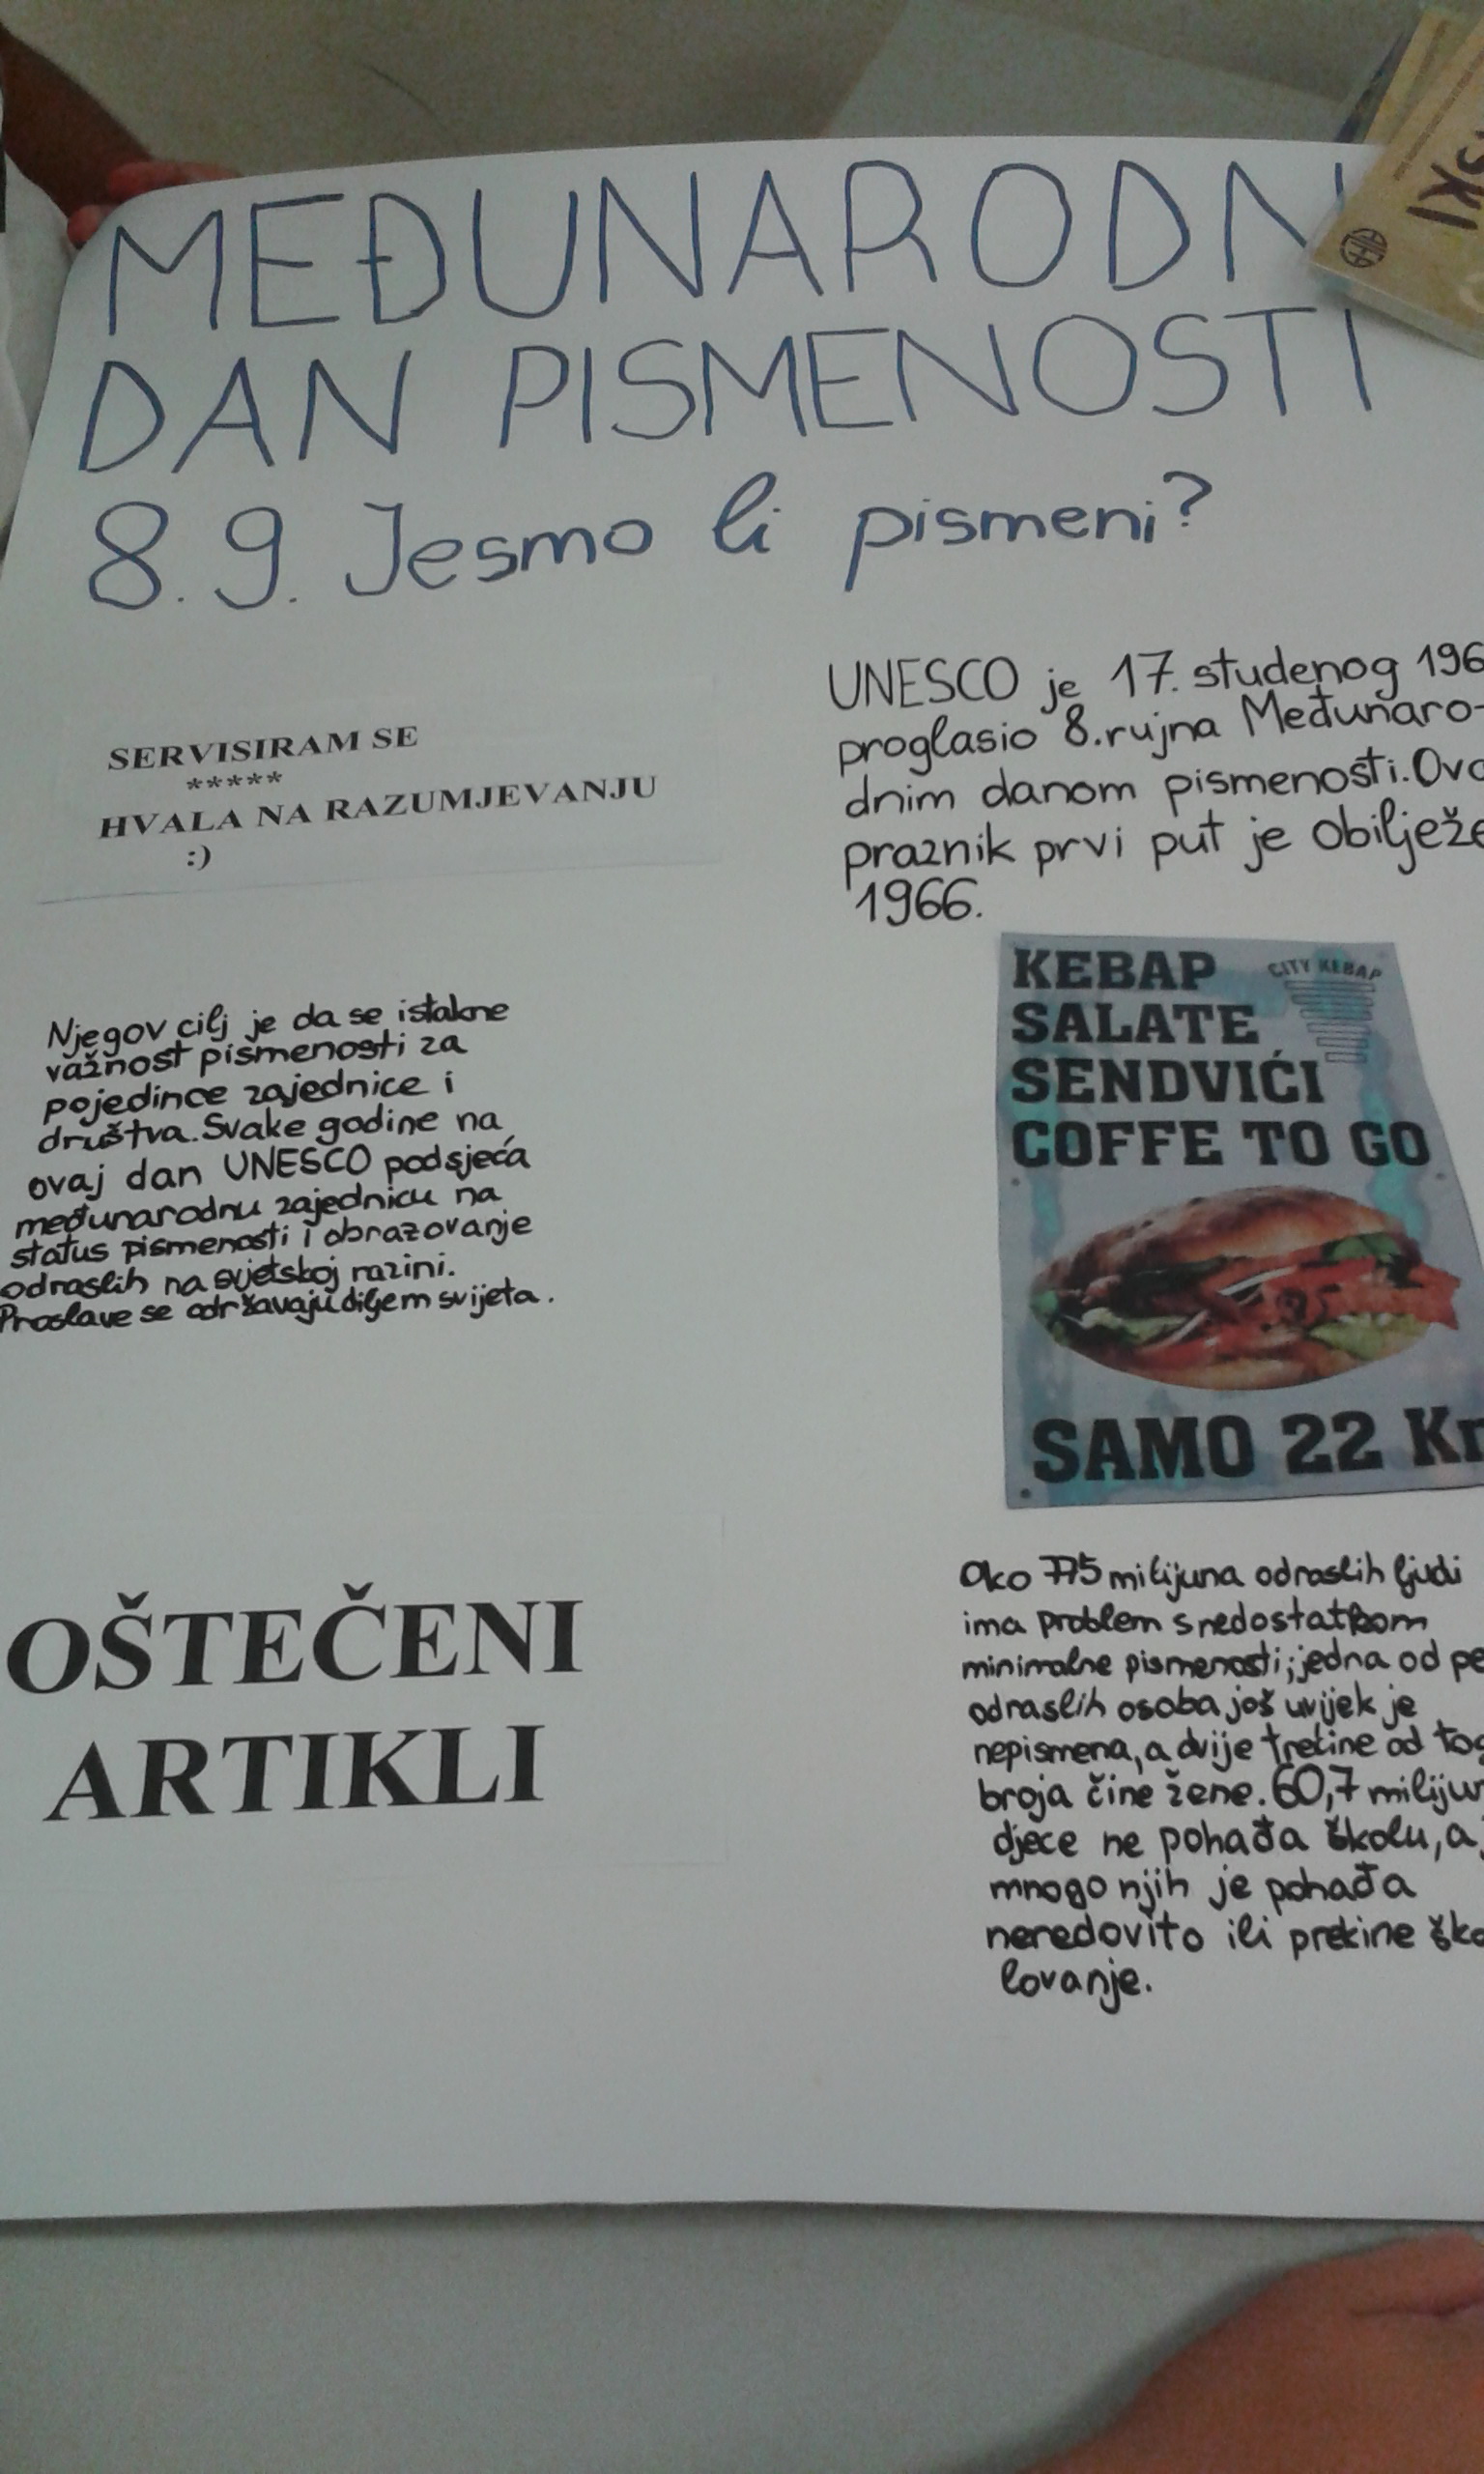 MEĐUNARODN
DAN PISMENOSTI
8.9. Jesmo li pismeni?
SERVISIRAM SE
*****
HVALA NA RAZUMJEVANJU
:)
UNESCO je 17. studenog 196
proglasio 8.rujna Međunaro-
dnim danom pismenosti. Ova
praznik prvi put je obilježe
1966.
Njegov cilj je da se istakne
važnost pismenosti za
pojedince zajednice i
društva. Svake godine na
ovaj dan UNESCO podsjeća
međunarodnu zajednicu na
status pismenosti i obrazovanje
odraslih na svjetskoj razini.
Proslave se održavaju diljem svijeta.
KEBAP
CITY KEBAP
SALATE
SENDVIĆI
COFFE TO GO
SAMO 22 Kn
OŠTEČENI
ARTIKLI
Oko 775 milijuna odraslih ljudi
ima problem s nedostatkom
minimalne pismenosti; jedna od pe
odraslih osoba još uvijek je
nepismena, a dvije trećine od tog
broja čine žene. 60,7 milijun
djece ne pohađa školu, a
mnogo njih je pohađa
neredovito ili prekine ško
lovanje.